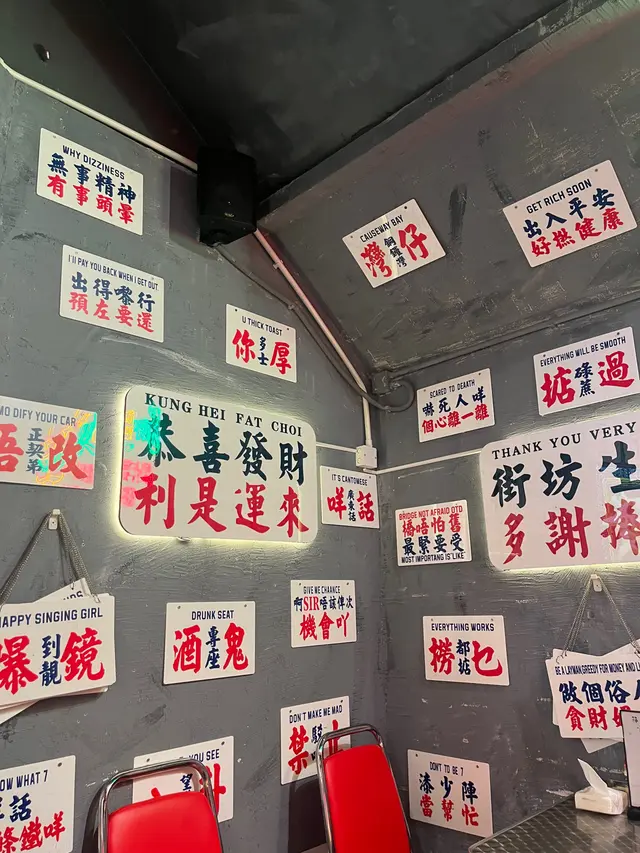 WHY DIZZINESS
無事精神
有事頭暈
I'll PAY YOU BACK WHEN I GET OUT
出得嚟行
預左要還
U THICK TOAST
你多士厚
KUNG HEI FAT CHOI
恭喜發財
利是運來
DIFY YOUR CAR
正契弟
改
CAUSEWAY BAY
灣銅鑼灣仔
GET RICH SOON
出入平安
好撚健康
EVERYTHING WILL BE SMOOTH
掂碌蔗過
SCARED TO DEAATH
嚇死人咩
個心離一離
THANK YOU VERY
街坊生
多謝捧
IT'S CANTOMESE
咩廣東話話
BRIDGE NOT AFRAID OTD
橋唔怕舊
最緊要受
MOST IMPORTANG IS'LIKE'
GIVE ME CHAANCE
啊SIR唔該俾次
機會吖
HAPPY SINGING GIRL
爆到靚鏡
DRUNK SEAT
酒專座鬼
EVERYTHING WORKS
撈都掂乜
BE A LAYMAN,GREEDY FOR MONEY AND
做個俗
貪財
DON'T MAKE ME MAD
禁
YOU SEE
望
OW WHAT 7
話
條鐵咩
DON'T TO BE 7
漆少陣
當幫忙